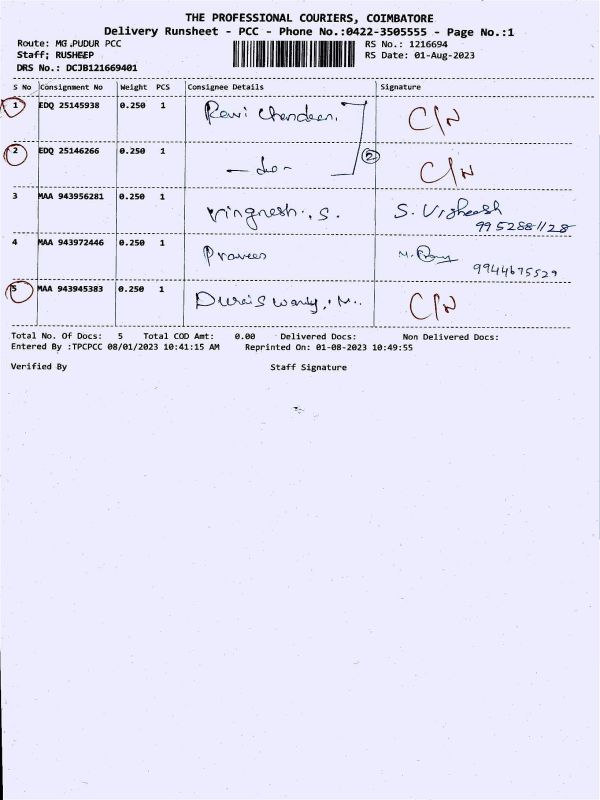 THE PROFESSIONAL COURIERS, COIMBATORE
Delivery Runsheet - PCC - Phone No.:0422-3505555 - Page No.:1
Route: MG.PUDUR PCC RS No.: 1216694
Staff; RUSHEEP RS Date: 01-Aug-2023
DRS No.: DCJB121669401
S No Consignment No Weight PCS Consignee Details Signature
1 EDQ 25145938 0.250 1 Ravi Chandran. C/N
2 EDQ 25146266 0.250 1 -do- 2 C/N
3 MAA 943956281 0.250 1 Vingnesh. S. S. Vigneesh
9952881128
4 MAA 943972446 0.250 1 Praveen M.
9944675529
5 MAA 943945383 0.250 1 Duraiswamy. M.. C/N
Total No. Of Docs: 5 Total COD Amt: 0.00 Delivered Docs: Non Delivered Docs:
Entered By :TPCPCC 08/01/2023 10:41:15 AM Reprinted On: 01-08-2023 10:49:55
Verified By Staff Signature